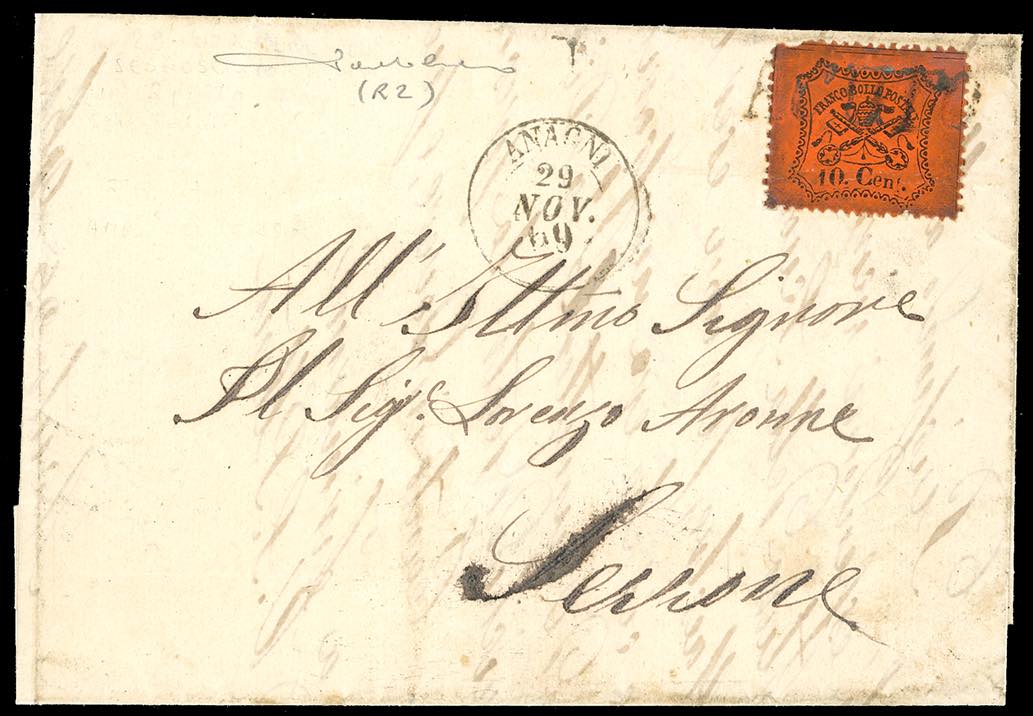 (R2)
ANAGNI
29
NOV.
69
FRANCO BOLLO POSTALE
10. Cent.
All' Illmo Signore
Il Sigr. Lorenzo Aronne
Serrone